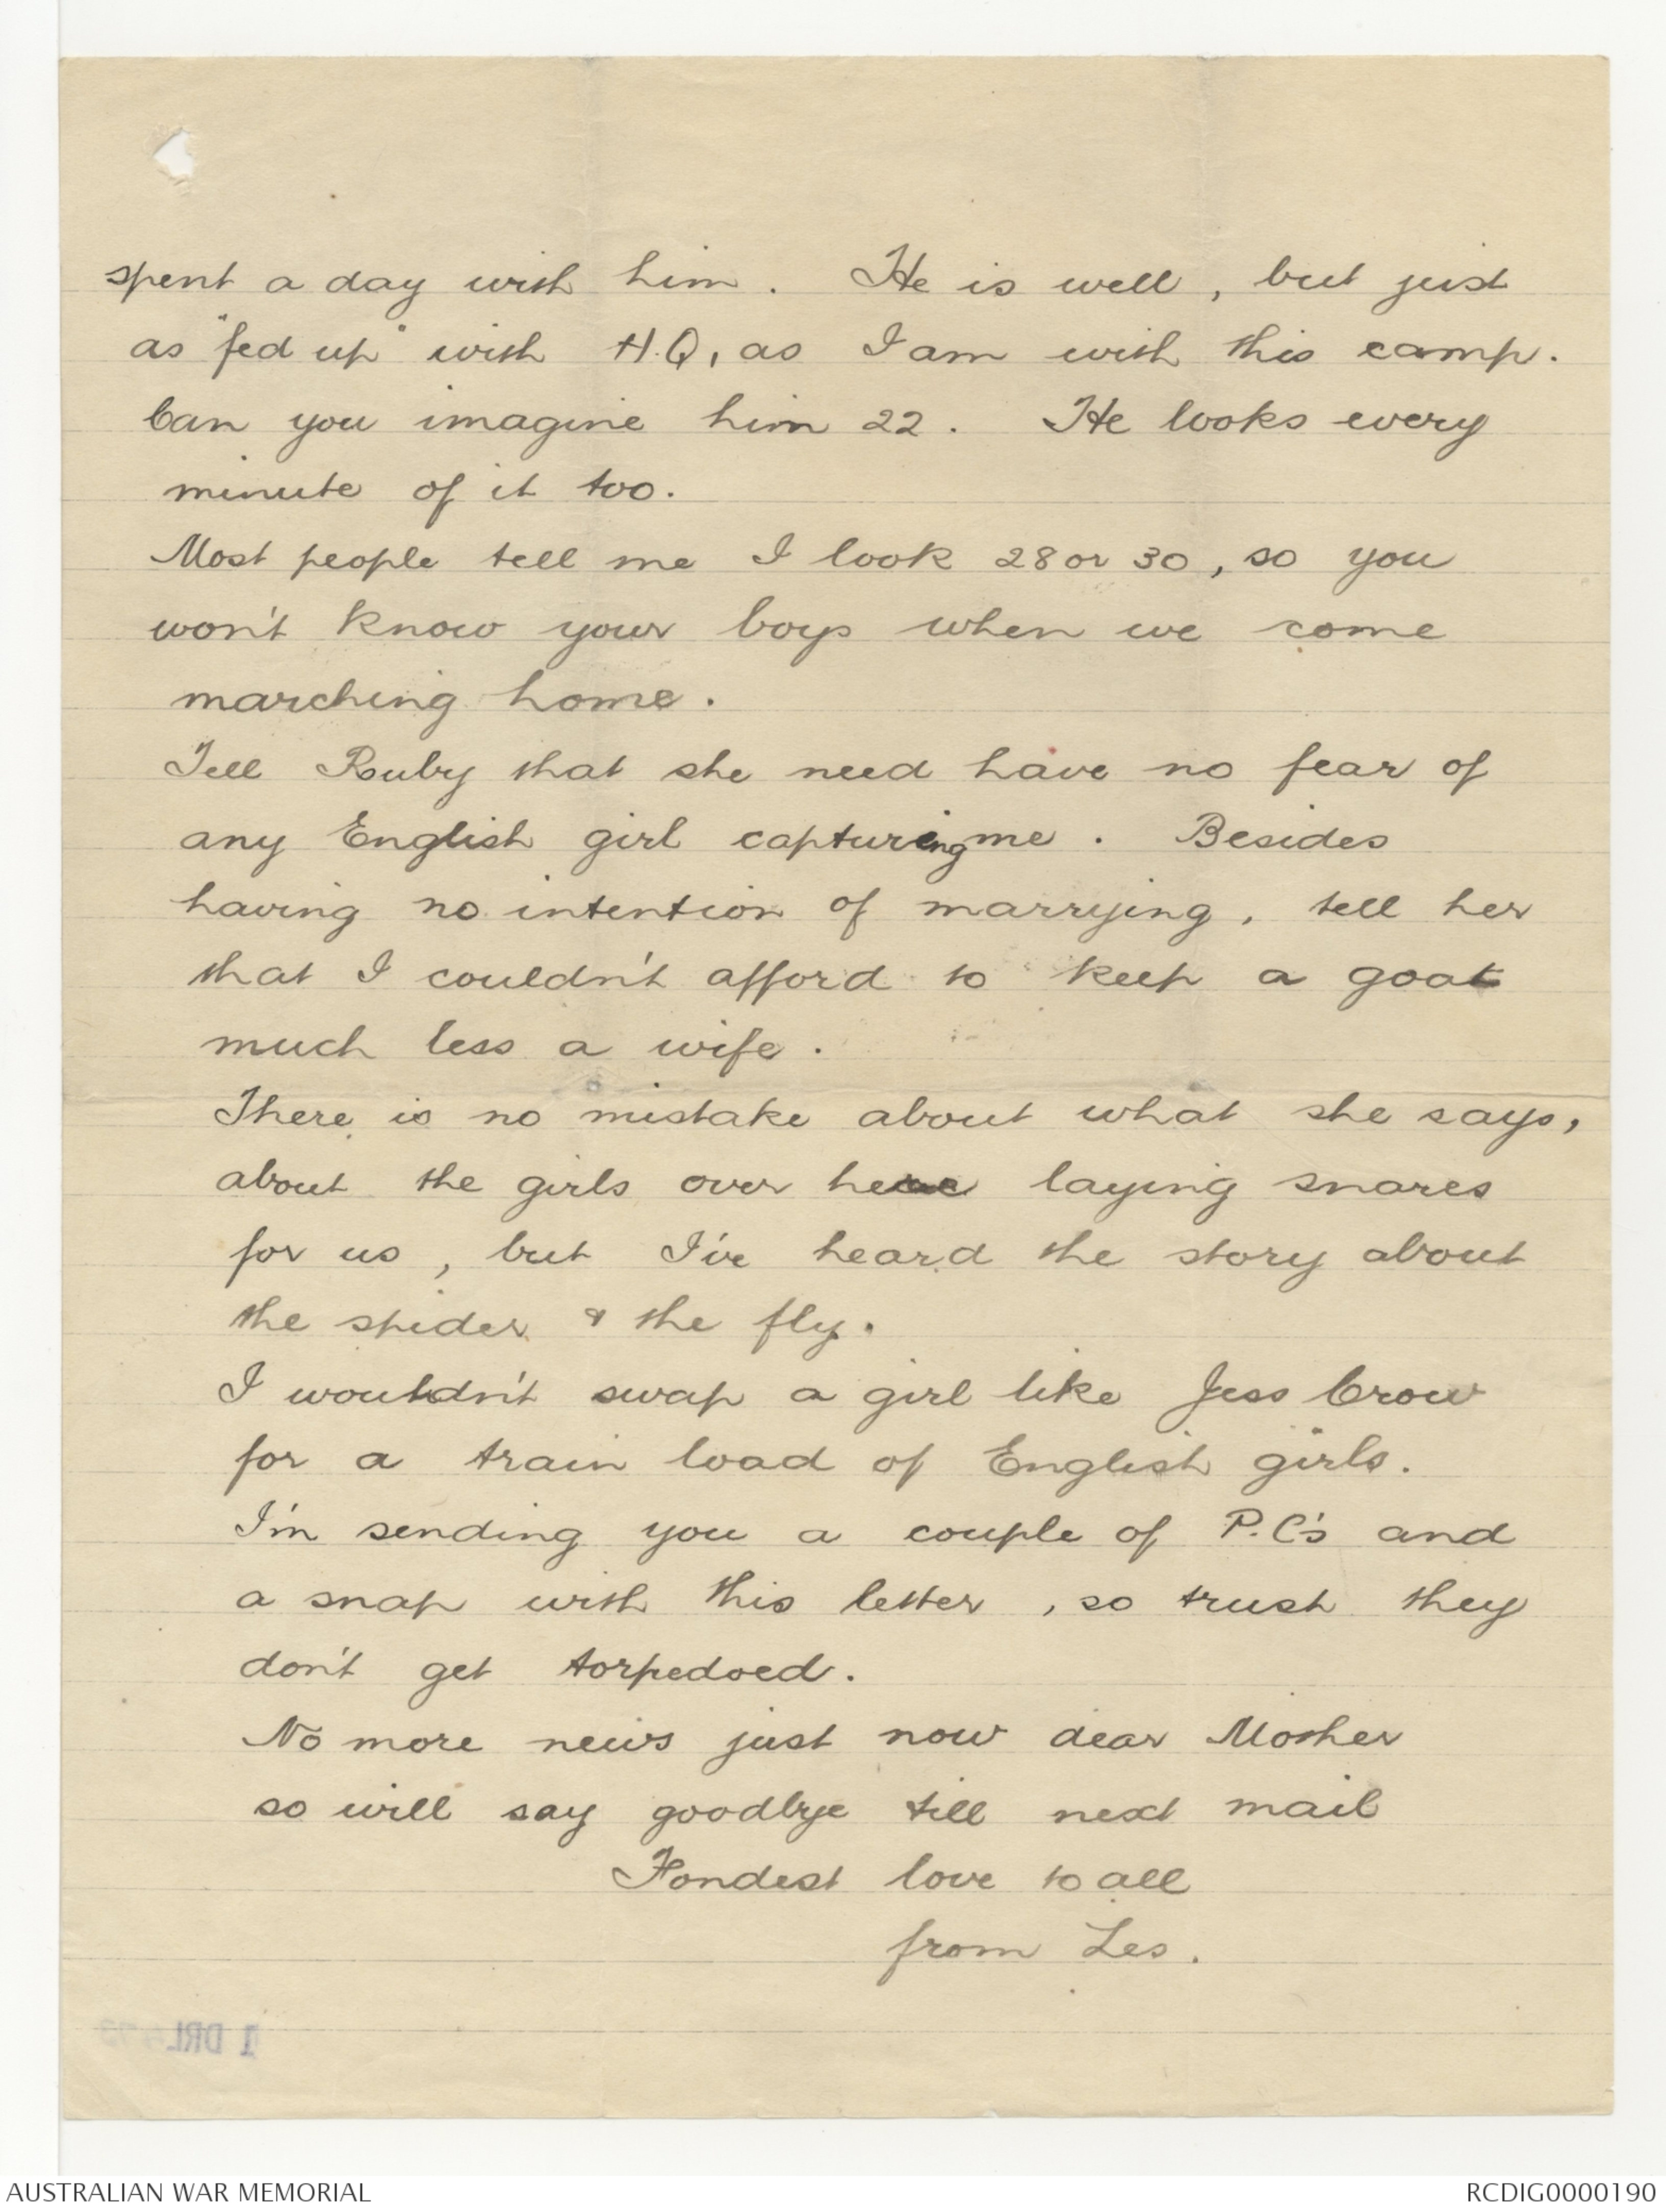 spent a day with him. He is well, but just
as "fed up" with H.Q, as I am with this camp.
Can you imagine him 22. He looks every
minute of it too.
Most people tell me I look 28 or 30, so you
won't know your boys when we come
marching home.
Tell Ruby that she need have no fear of
any English girl capturing me. Besides
having no intention of marrying, tell her
that I couldn't afford to keep a goat
much less a wife.
There is no mistake about what she says,
about the girls over here laying snares
for us, but I've heard the story about
the spider & the fly.
I wouldn't swap a girl like Jess Crow
for a train load of English girls.
I'm sending you a couple of P.C's and
a snap with this letter, so trust they
don't get torpedoed.
No more news just now dear Mother
so will say goodbye till next mail
Fondest love to all
from Les.
1 DRL
AUSTRALIAN WAR MEMORIAL
RCDIG0000190